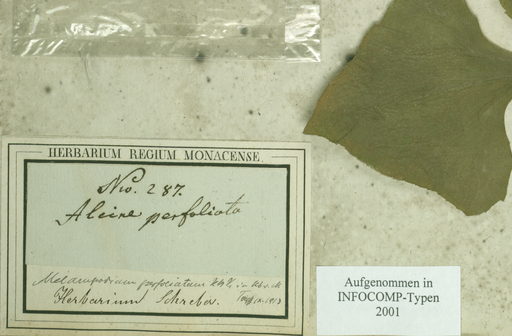 HERBARIUM REGIUM MONACENSE.
No. 287.
Alcine perfoliata
Melampodium perfoliatum
Herbarium Schreber.
Aufgenommen in
INFOCOMP-Typen
2001